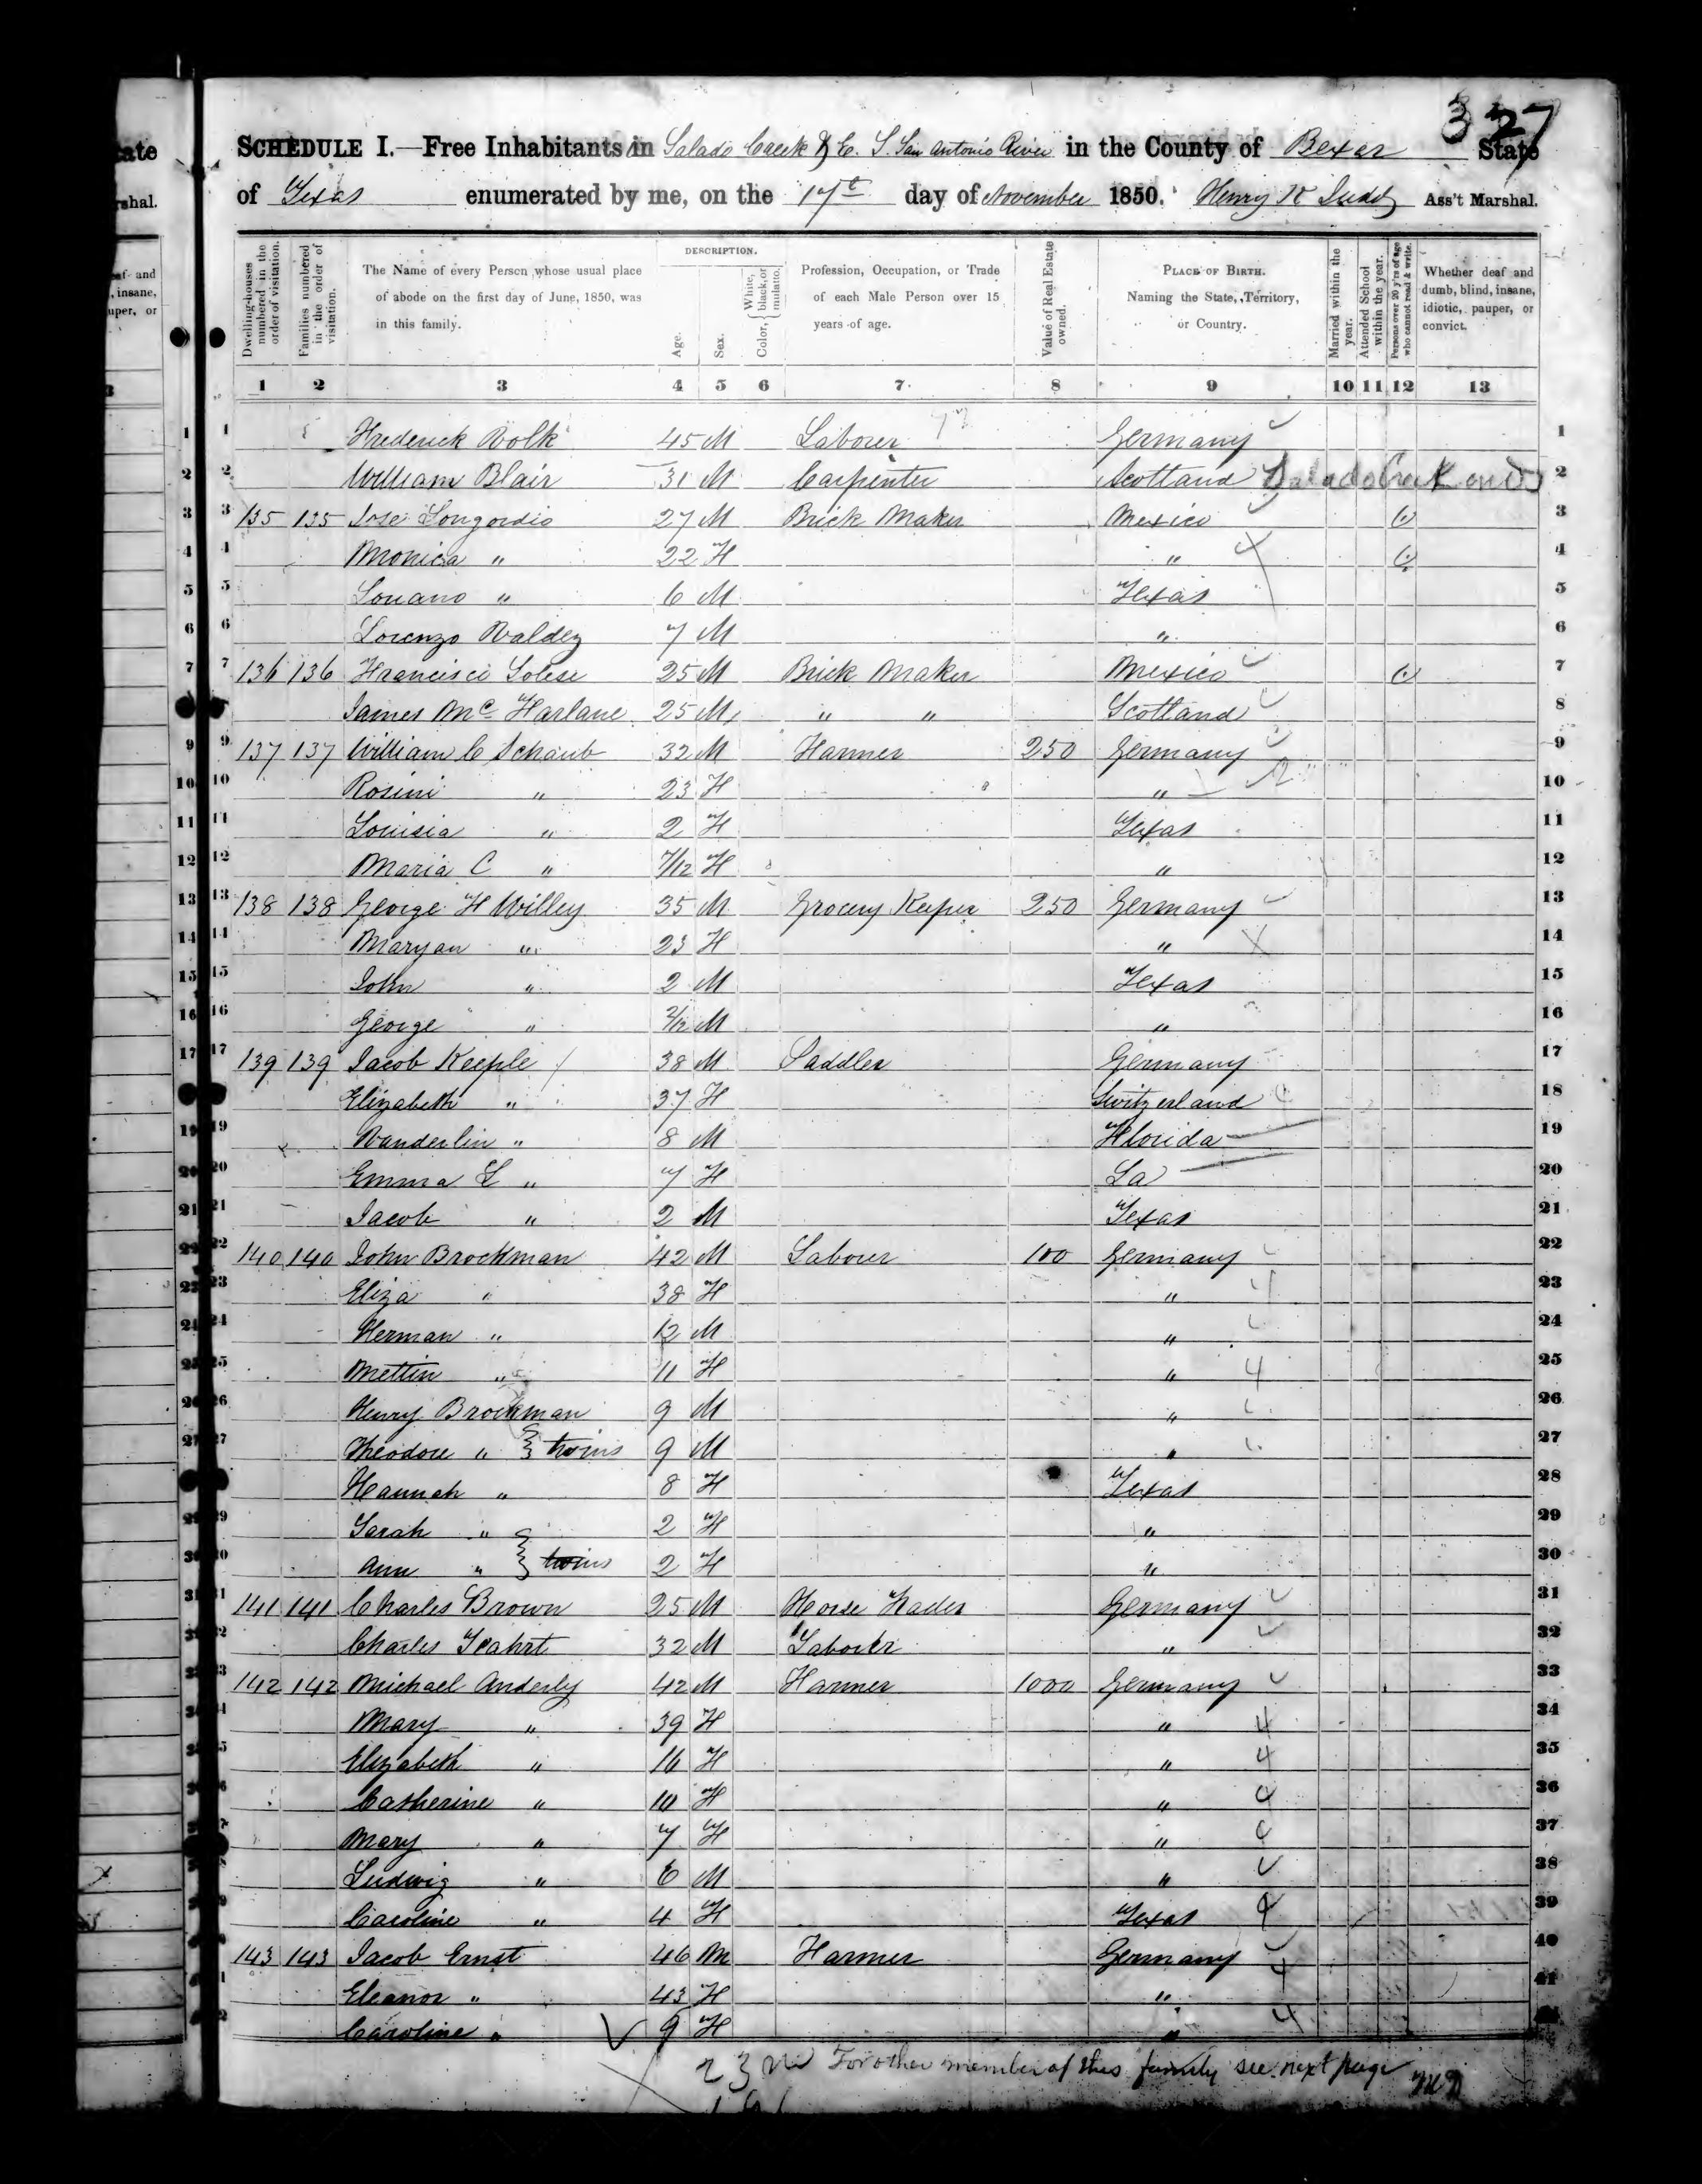 327
SCHEDULE I.—Free Inhabitants in Salado Creek & E. S. San Antonio River in the County of Bexar State
of Texas enumerated by me, on the 17th day of November 1850. Henry K Judd Ass't Marshal.
Dwelling-houses numbered in the order of visitation.
Families numbered in the order of visitation.
The Name of every Person whose usual place of abode on the first day of June, 1850, was in this family.
DESCRIPTION.
Age.
Sex.
Color, { White, black, or mulatto.
Profession, Occupation, or Trade of each Male Person over 15 years of age.
Value of Real Estate owned.
PLACE OF BIRTH. Naming the State, Territory, or Country.
Married within the year.
Attended School within the year.
Persons over 20 y'rs of age who cannot read & write.
Whether deaf and dumb, blind, insane, idiotic, pauper, or convict.
1 2 3 4 5 6 7 8 9 10 11 12 13
1 Frederick Volk 45 M Labourer Germany 1
2 William Blair 31 M Carpenter Scotland Salado Creek ends 2
3 135 135 Jose Longordio 27 M Brick Maker Mexico 3
4 Monica " 22 F " 4
5 " 6 M Texas 5
6 Lorenzo Valdez 7 M " 6
7 136 136 Francisco 25 M Brick Maker Mexico 7
James Mc Farlane 25 M " " Scotland 8
9 137 137 William C Schaub 32 M Farmer 250 Germany 9
10 Rosini " 23 F " 10
11 Louisia " 2 F Texas 11
12 Maria C " 7/12 F " 12
13 138 138 George F Willey 35 M Grocery Keeper 250 Germany 13
14 Maryan " 23 F " 14
15 John " 2 M Texas 15
16 George " 2/12 M " 16
17 139 139 Jacob Keeple 38 M Saddler Germany 17
Elizabeth " 37 F Switzerland 18
19 Vanderlin " 8 M Florida 19
20 Emma L " 7 F La 20
21 Jacob " 2 M Texas 21
22 140 140 John Brockman 42 M Labourer 100 Germany 22
23 Eliza " 38 F " 23
24 Herman " 12 M " 24
25 Mettin " 11 F " 25
26 Henry Brockman 9 M " 26
27 Theodore " } twins 9 M " 27
Hannah " 8 F Texas 28
29 Sarah " 2 F " 29
30 Ann " } twins 2 F " 30
31 141 141 Charles Brown 25 M Horse Trader Germany 31
32 Charles 32 M Labourer " 32
33 142 142 Michael Anderly 42 M Farmer 1000 Germany 33
Mary " 39 F " 34
Elizabeth " 16 F " 35
Catherine " 10 F " 36
Mary " 7 F " 37
Ludwig " 6 M " 38
Caroline " 4 F Texas 39
143 143 Jacob Ernst 46 M Farmer Germany 40
Eleanor " 43 F " 41
Caroline " 9 F "
23 For other member of this family see next page